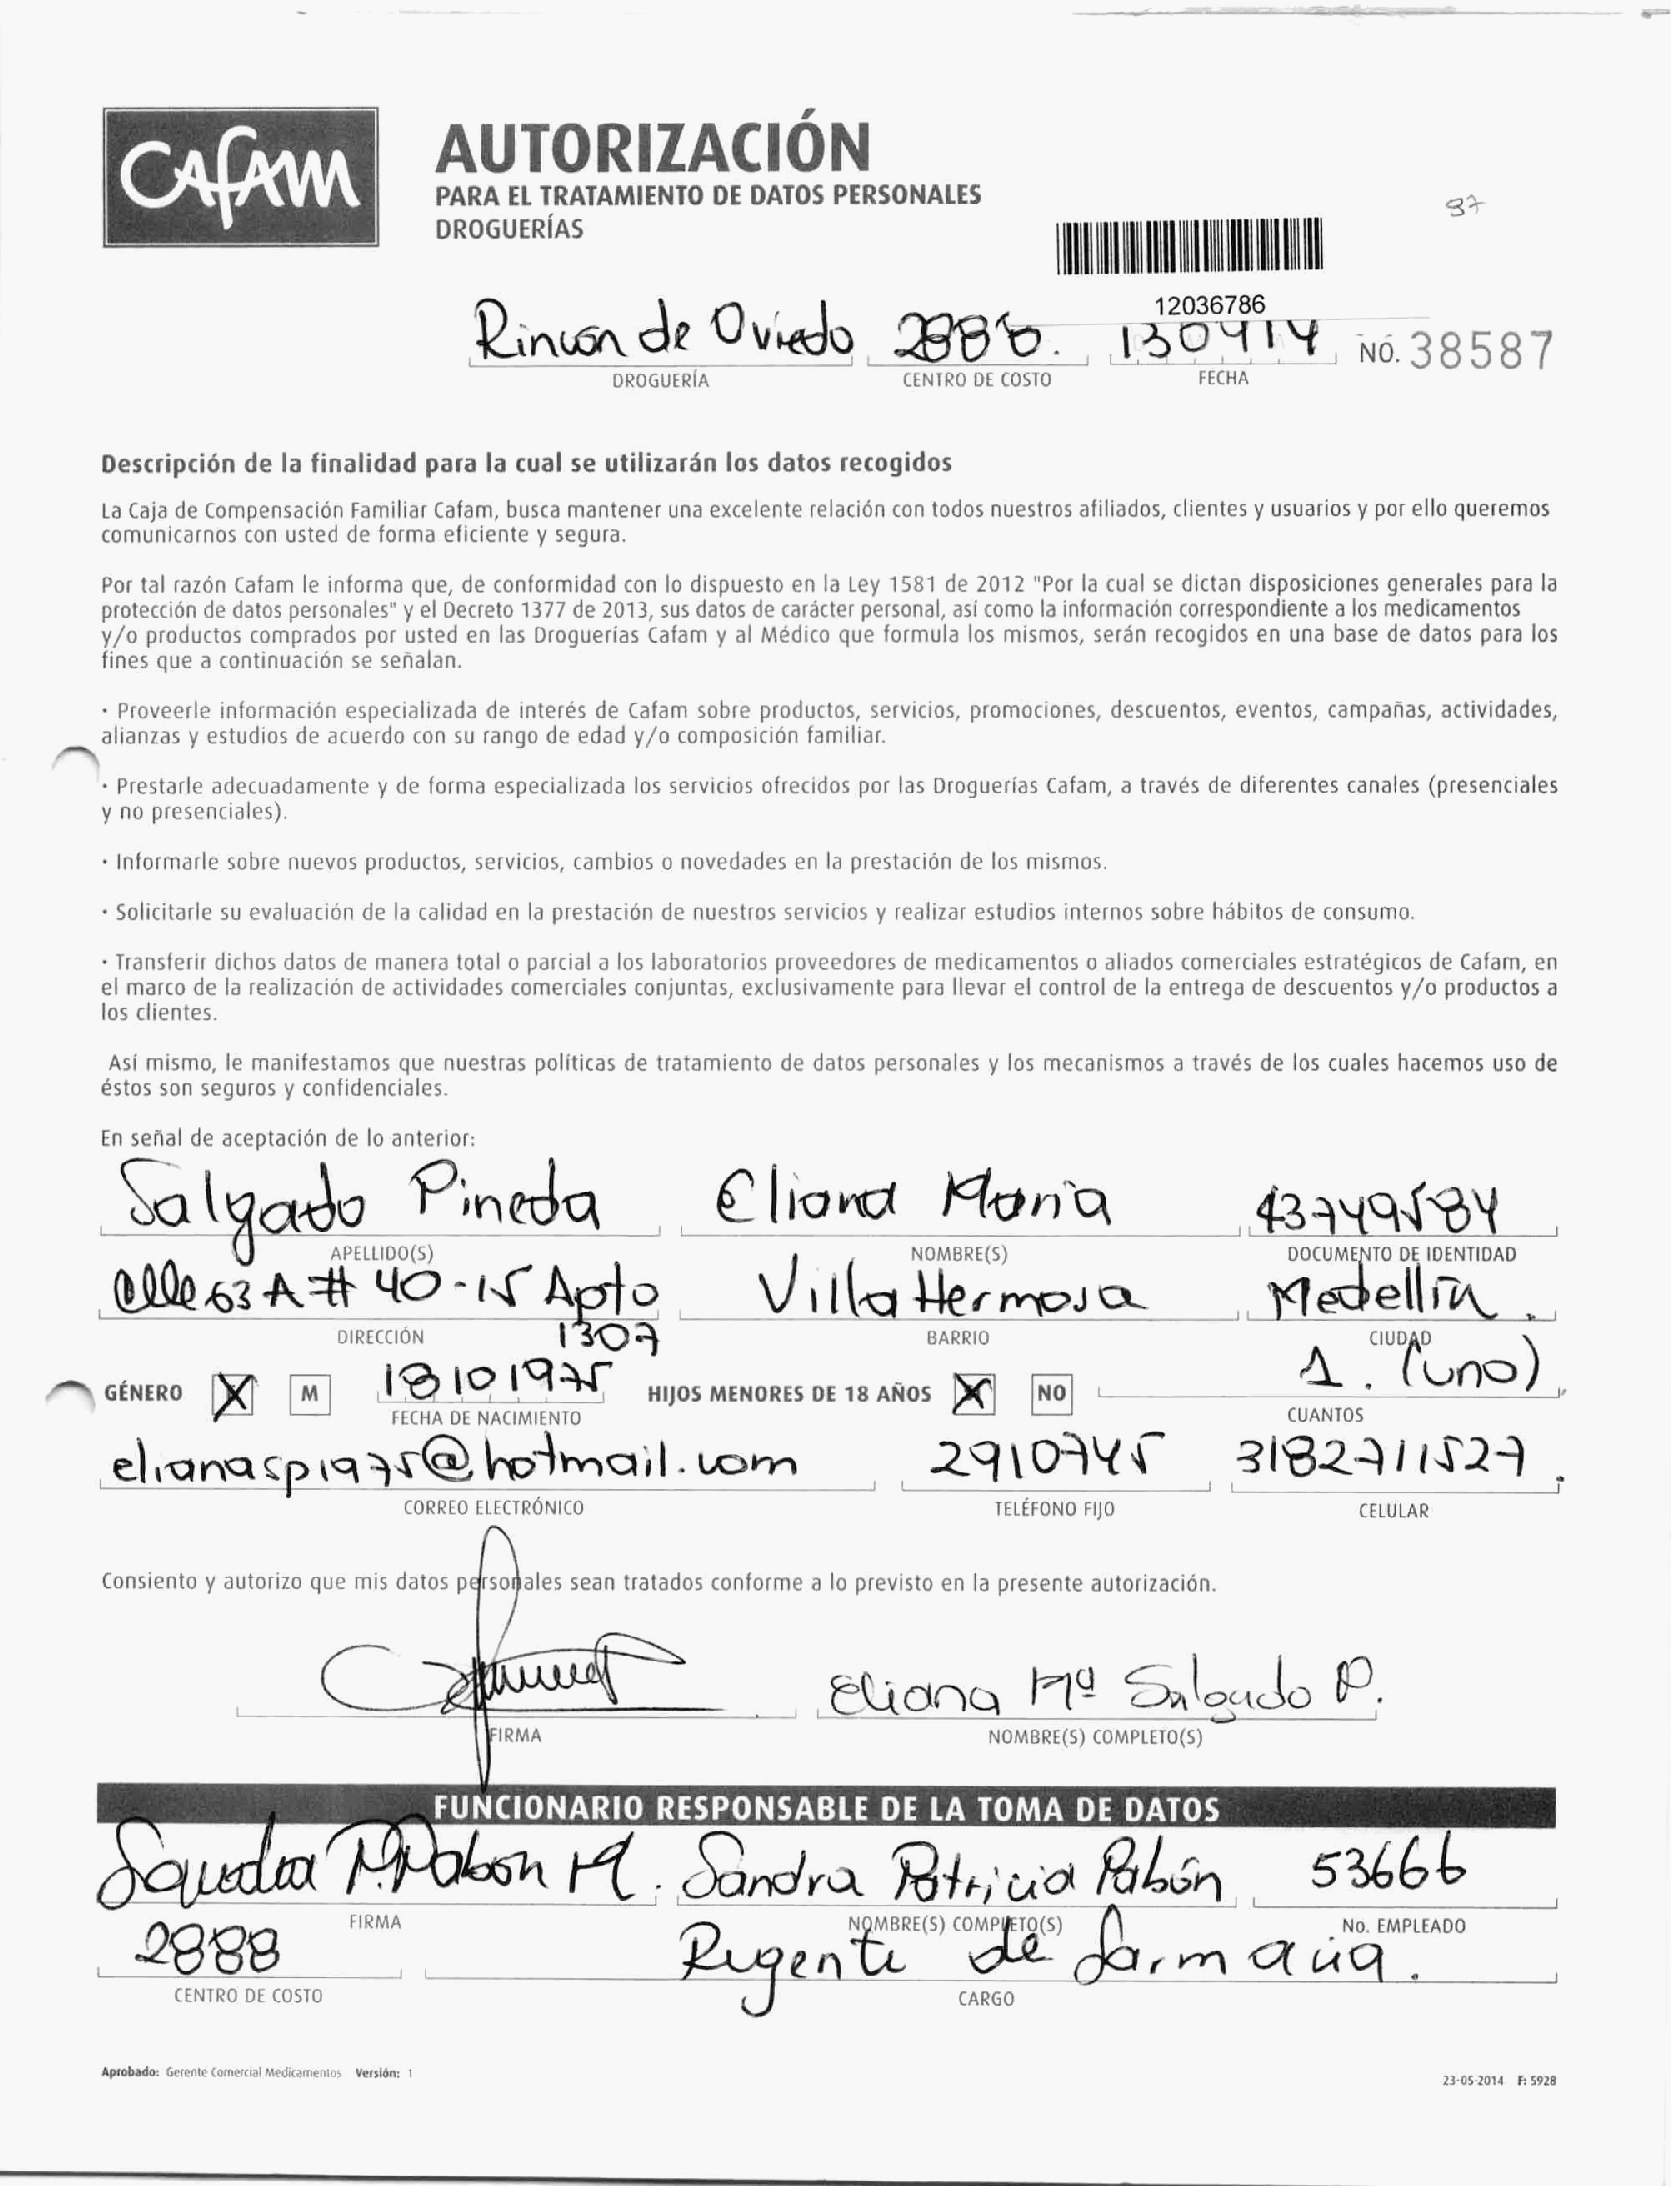 CAFAM
AUTORIZACIÓN
PARA EL TRATAMIENTO DE DATOS PERSONALES
DROGUERÍAS
37
12036786
Rincón de Oviedo 2888. 130914 NO. 38587
DROGUERÍA CENTRO DE COSTO FECHA
Descripción de la finalidad para la cual se utilizarán los datos recogidos
La Caja de Compensación Familiar Cafam, busca mantener una excelente relación con todos nuestros afiliados, clientes y usuarios y por ello queremos
comunicarnos con usted de forma eficiente y segura.
Por tal razón Cafam le informa que, de conformidad con lo dispuesto en la Ley 1581 de 2012 "Por la cual se dictan disposiciones generales para la
protección de datos personales" y el Decreto 1377 de 2013, sus datos de carácter personal, así como la información correspondiente a los medicamentos
y/o productos comprados por usted en las Droguerías Cafam y al Médico que formula los mismos, serán recogidos en una base de datos para los
fines que a continuación se señalan.
· Proveerle información especializada de interés de Cafam sobre productos, servicios, promociones, descuentos, eventos, campañas, actividades,
alianzas y estudios de acuerdo con su rango de edad y/o composición familiar.
· Prestarle adecuadamente y de forma especializada los servicios ofrecidos por las Droguerías Cafam, a través de diferentes canales (presenciales
y no presenciales).
· Informarle sobre nuevos productos, servicios, cambios o novedades en la prestación de los mismos.
· Solicitarle su evaluación de la calidad en la prestación de nuestros servicios y realizar estudios internos sobre hábitos de consumo.
· Transferir dichos datos de manera total o parcial a los laboratorios proveedores de medicamentos o aliados comerciales estratégicos de Cafam, en
el marco de la realización de actividades comerciales conjuntas, exclusivamente para llevar el control de la entrega de descuentos y/o productos a
los clientes.
Así mismo, le manifestamos que nuestras políticas de tratamiento de datos personales y los mecanismos a través de los cuales hacemos uso de
éstos son seguros y confidenciales.
En señal de aceptación de lo anterior:
Salgado Pineda Eliana Maria 43749584
APELLIDO(S) NOMBRE(S) DOCUMENTO DE IDENTIDAD
Calle 63 A # 40-15 Apto Villa Hermosa Medellín.
1307
DIRECCIÓN BARRIO CIUDAD
GÉNERO X M 18101975 HIJOS MENORES DE 18 AÑOS X NO 1. (uno)
FECHA DE NACIMIENTO CUANTOS
elianasp1975@hotmail.com 2910745 3182711527.
CORREO ELECTRÓNICO TELÉFONO FIJO CELULAR
Consiento y autorizo que mis datos personales sean tratados conforme a lo previsto en la presente autorización.
Eliana Mª Salgado P.
FIRMA NOMBRE(S) COMPLETO(S)
FUNCIONARIO RESPONSABLE DE LA TOMA DE DATOS
Sandra P. Pabon M. Sandra Patricia Pabón 53666
FIRMA NOMBRE(S) COMPLETO(S) No. EMPLEADO
2888 Regente de farmacia.
CENTRO DE COSTO CARGO
Aprobado: Gerente Comercial Medicamentos Versión: 1
23-05-2014 F: 5928